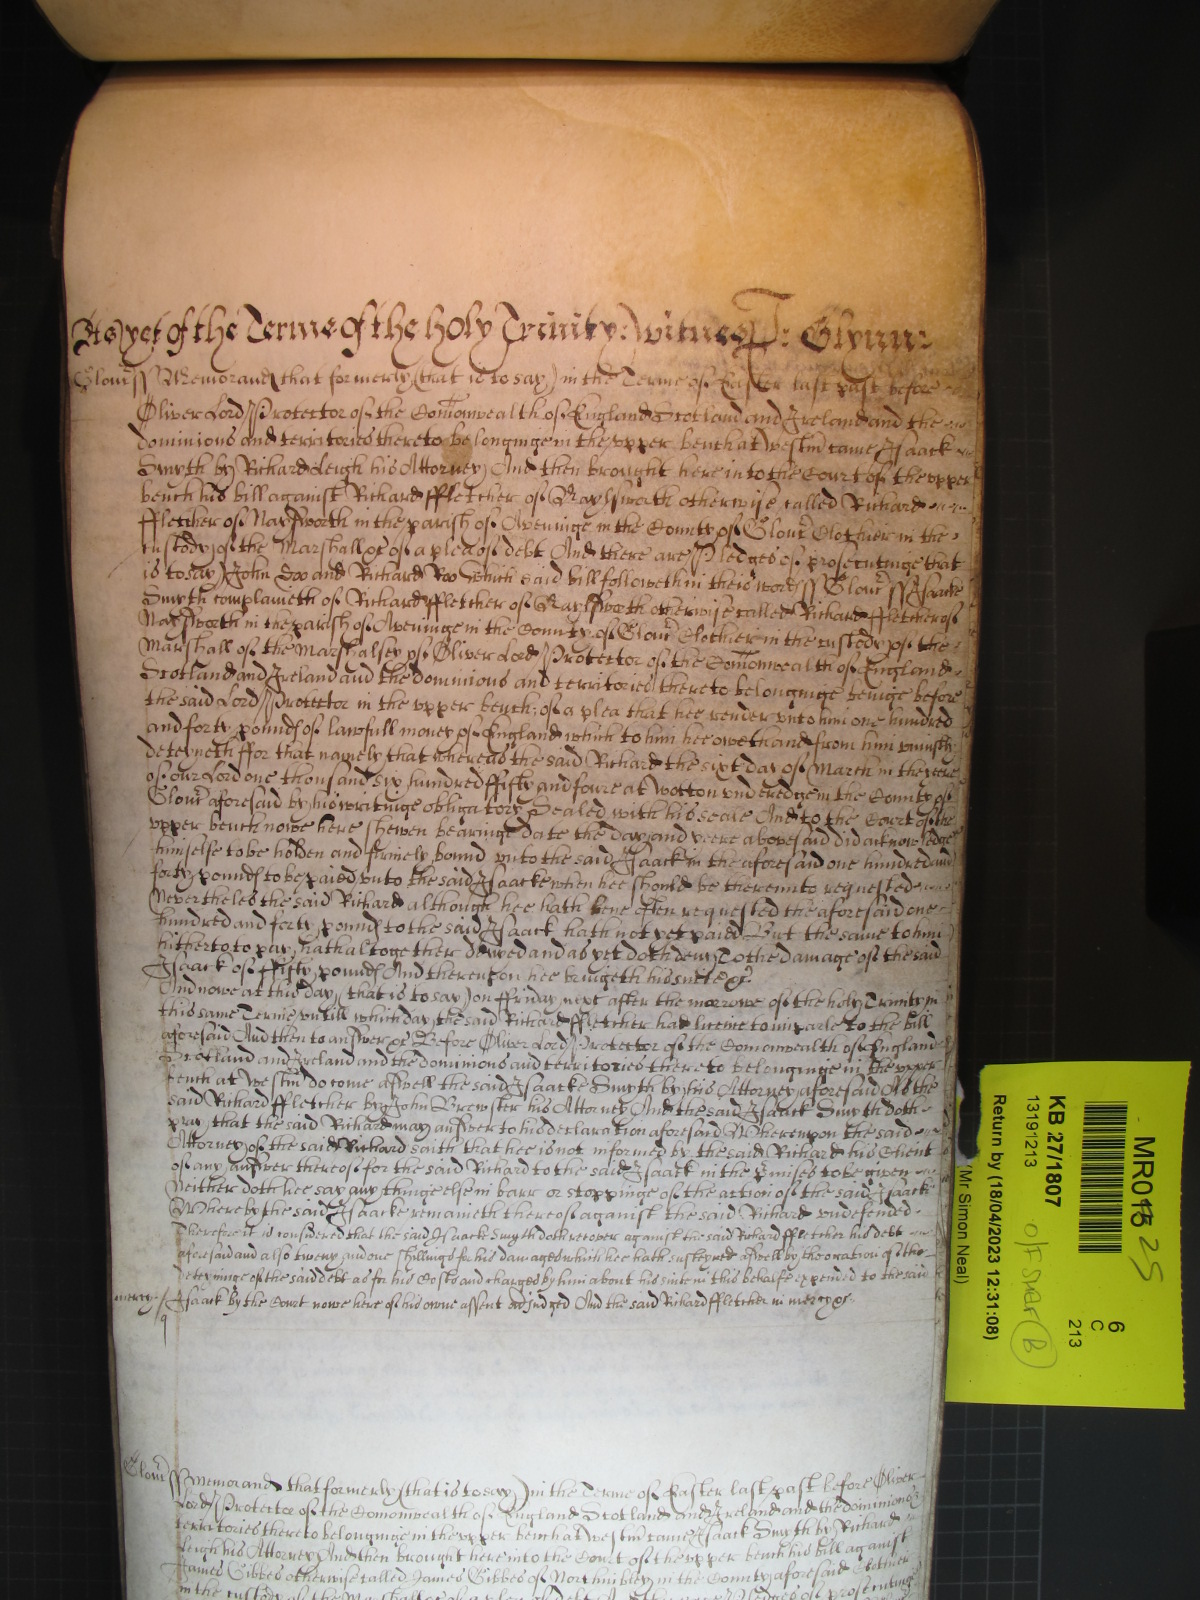 As yet of the Terme of the holy Trinity: witnes J: Glynn:
Glouc̃ ss Memorand that formerly (that is to say) in the Terme of Easter last past before
Oliver Lord Protector of the Com̃onwealth of England Scotland and Ireland and the
dominions and territories thereto belonginge in the upper bench at Westm̃ came Isaack
Smyth by Richard Leigh his Attorney And then brought here into the Court of the upper
bench his bill against Richard ffletcher of Naylsworth otherwise called Richard
ffletcher of Naylsworth in the parish of Aveninge in the County of Glouc̃ Clothier in the
custody of the Marshall &c of a plea of debt And there are Pledges of prosecutinge that
is to say John Doo and Richard Roo Which said bill followeth in theis words ss Glouc̃ ss Isaacke
Smyth complaineth of Richard ffletcher of Naylsworth otherwise called Richard ffletcher of
Naylsworth in the parish of Aveninge in the County of Glouc̃ Clothier in the custody of the
Marshall of the Marshalsey of Oliver Lord Protector of the Com̃onwealth of England
Scotland and Ireland and the dominions and territories thereto belonginge beinge before
the said Lord Protector in the upper bench, of a plea that hee render unto him one hundred
and forty pounds of lawfull money of England which to him hee oweth and from him uniustly
deteyneth ffor that namely that whereas the said Richard the sixt day of March in the yeere
of our Lord one thousand six hundred fifty and foure at Wotton underedge in the County of
Glouc̃ aforesaid by his writinge obligatory Sealed with his seale And to the Court of the
upper bench nowe here shewen bearinge date the day and yeere abovesaid did acknowledge
himselfe to be holden and firmely bound unto the said Isaack in the aforesaid one hundred and
forty pounds to be paied unto the said Isaacke when hee should be thereunto requested
Nevertheles the said Richard although hee hath bene often requested the aforesaid one
hundred and forty pounds to the said Isaack hath not yet paied But the same to him
hitherto to pay, hath altogether denyed and as yet doth deny To the damage of the said
Isaack of ffifty pounds And thereupon hee bringeth his suite &c
And nowe at this day (that is to say) on ffriday next after the morrowe of the holy Trinity in
this same Terme untill which day the said Richard ffletcher had licence to imparle to the bill
aforesaid And then to answer &c Before Oliver Lord Protector of the Com̃onwealth of England
Scotland and Ireland and the dominions and territories thereto belonginge in the upper
bench at Westm̃ do come aswell the said Isaacke Smyth by his Attorney aforesaid As the
said Richard ffletcher by John Brewster his Attorney And the said Isaack Smyth doth
pray, that the said Richard may answer to his declaration aforesaid Whereupon the said
Attorney of the said Richard saith that hee is not informed by the said Richard his Client
of any answer thereof for the said Richard to the said Isaack in the p̃misses to be given
Neither doth hee say any thinge else in barr or stoppinge of the action of the said Isaack
Whereby the said Isaacke remaineth thereof against the said Richard undefended
Therefore it is considered that the said Isaacke Smyth doth recover against the said Richard ffletcher his debt
aforesaid and also twenty and one shillings for his damages which hee hath susteyned aswell by the occasion of the
deteyninge of the said debt as for his Costs and charges by him about his suite in this behalfe expended to the said
mercy / Isaack by the Court nowe here of his owne assent adjudged And the said Richard ffletcher in mercy &c
Glouc̃ ss Memorand that formerly (that is to say) in the Terme of Easter last past before Oliver
Lord Protector of the Com̃onwealth of England Scotland and Ireland and the dominions &
territories thereto belonginge in the upper bench at Westm̃ came Isaack Smyth by Richard
Leigh his Attorney And then brought here into the Court of the upper bench his bill against
James Gibbes otherwise called James Gibbes of Northnibley in the County aforesaid Clothier
in the custody of the Marshall &c of a plea of debt And there are Pledges of prosecutinge
MR01825
6
C
213
KB 27/1807
13191213
O/F Smar (B)
Return by (18/04/2023 12:31:08)
(Mr Simon Neal)